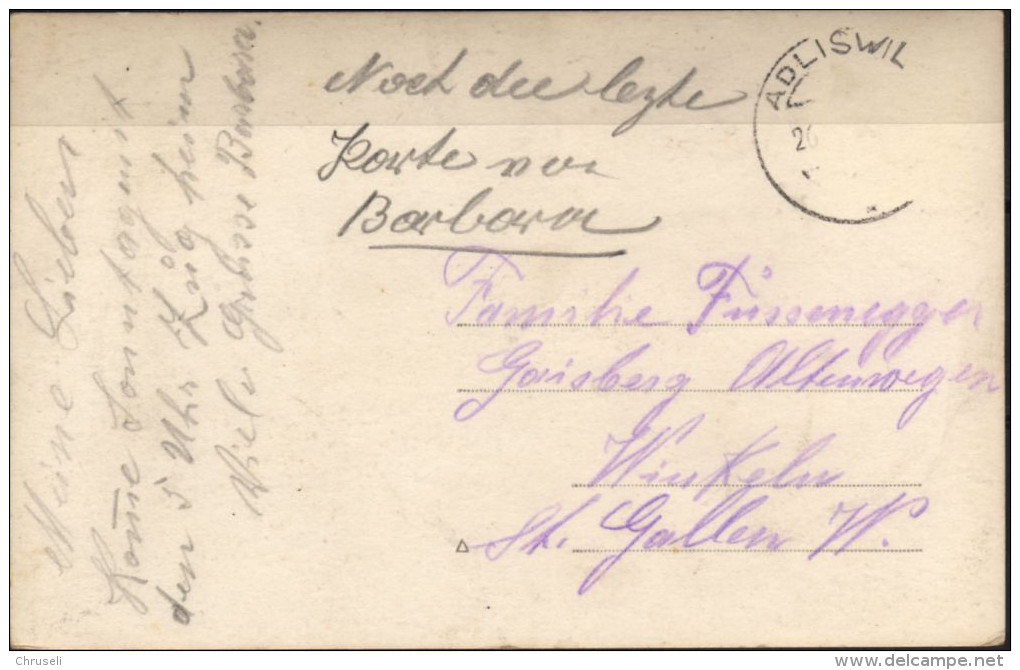 Meine Lieben
Komme Sonntag mit
dem 5 Uhr Zug heim
Viele Grüsse Barbara.
Noch die lezte
Karte von
Barbara
ADLISWIL
Familie Füssenegger
Gaisberg Altenwegen
Winkeln
St. Gallen W.
Chruseli
www.delcampe.net